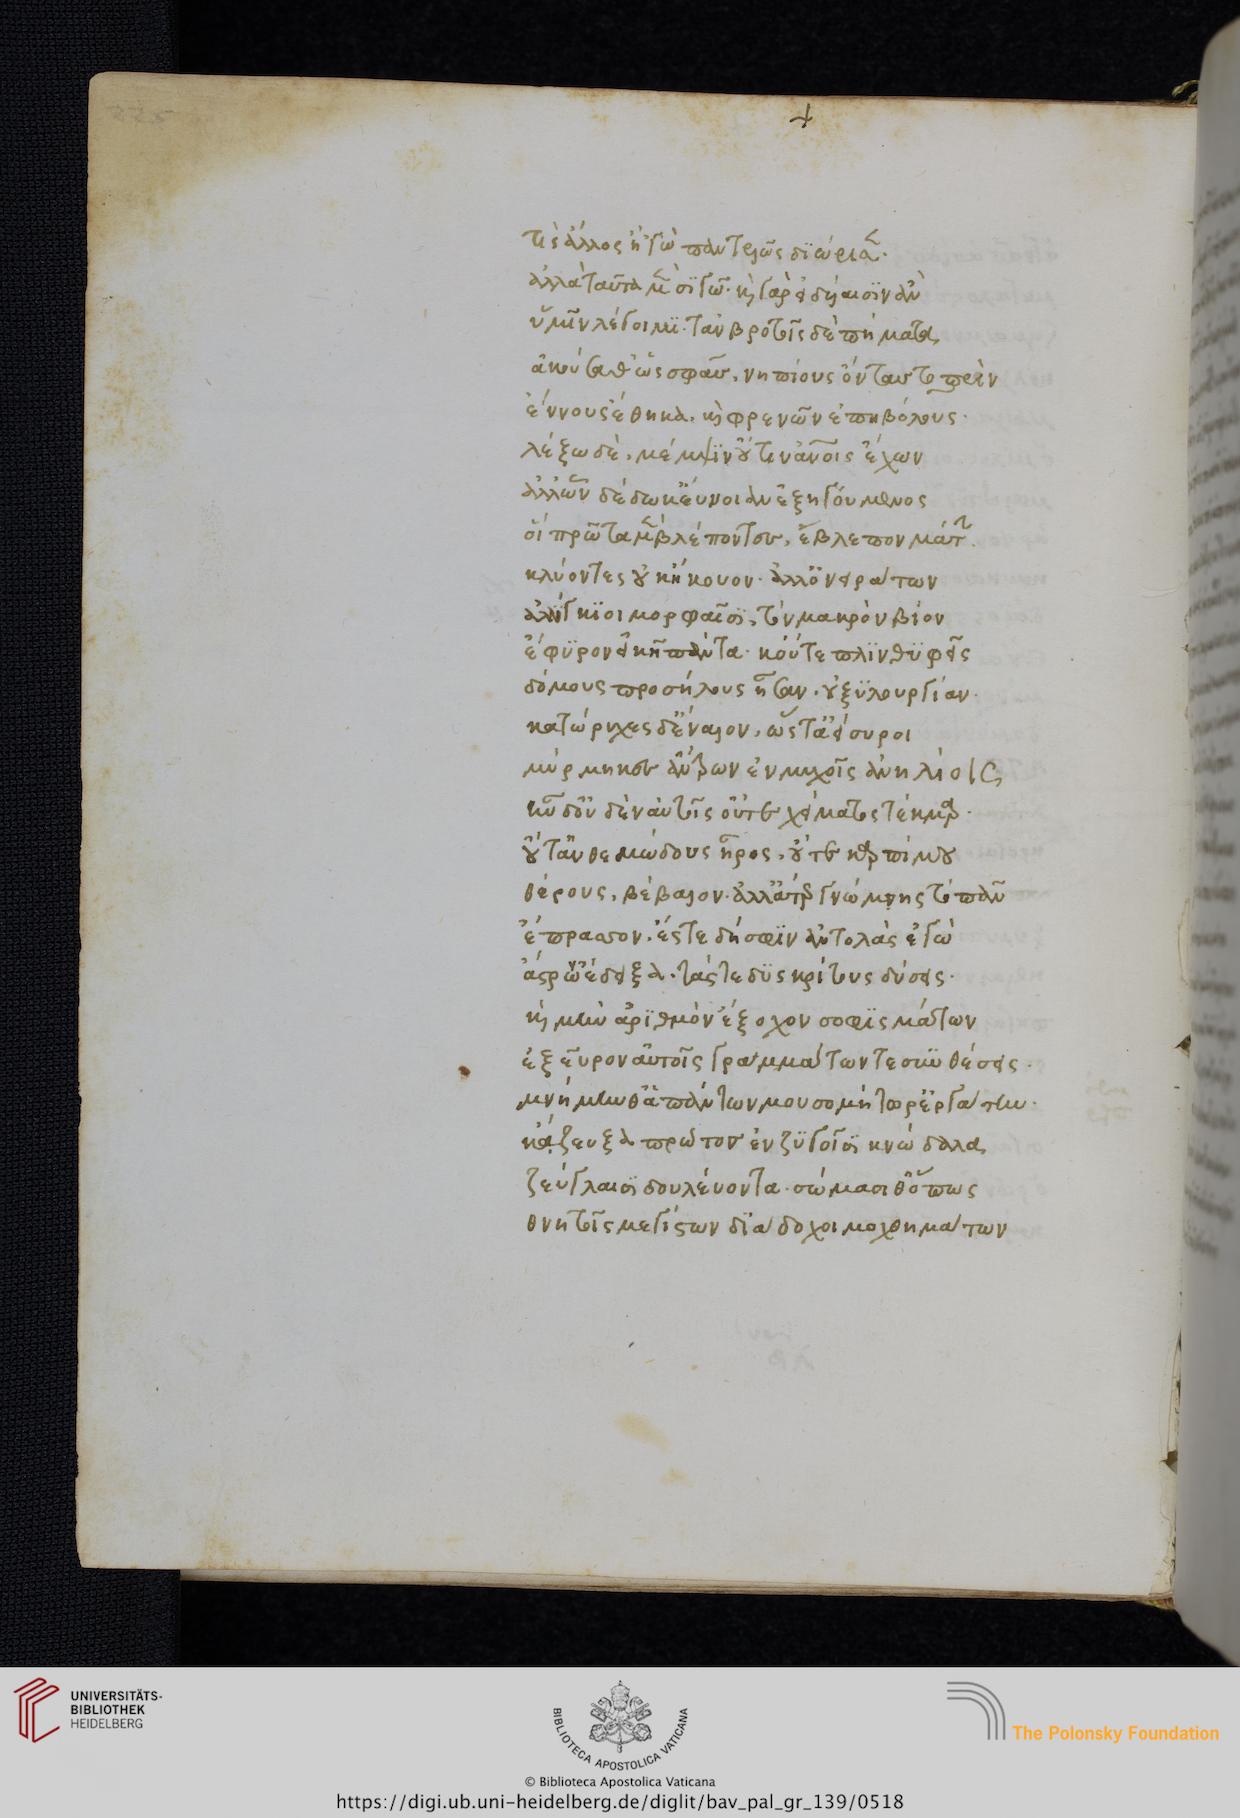 τίς ἄλλος ἢ 'γὼ παντελῶς διώρισεν·
ἀλλὰ ταῦτα μὲν σιγῶ· καὶ γὰρ εἰδυίαισιν ἂν
ὑμῖν λέγοιμι· τἀν βροτοῖς δὲ πήματα
ἀκούσαθ' ὥς σφας, νηπίους ὄντας τὸ πρὶν
ἔννους ἔθηκα, καὶ φρενῶν ἐπηβόλους·
λέξω δὲ, μέμψιν οὔτιν' ἀνθρώποις ἔχων
ἀλλ' ὧν δέδωκ' εὔνοιαν ἐξηγούμενος
οἳ πρῶτα μὲν βλέποντες, ἔβλεπον μάτην.
κλύοντες οὐκ ἤκουον· ἀλλ' ὀνειράτων
ἀλίγκιοι μορφαῖσι, τὸν μακρὸν βίον
ἔφυρον εἰκῆ πάντα· κοὔτε πλινθυφεῖς
δόμους προσήλους ᾖσαν· οὐ ξυλουργίαν·
κατώρυχες δ' ἔναιον, ὥστ' ἀείσυροι
μύρμηκες ἄντρων ἐν μυχοῖς ἀνηλίοις
κοὐδὲν αὐτοῖς οὔτε χείματος τέκμαρ·
οὔτ' ἀνθεμώδους ἦρος, οὔτε καρπίμου
θέρους, βέβαιον· ἀλλ' ἄτερ γνώμης τὸ πᾶν
ἔπρασσον· ἔστε δή σφιν ἀντολὰς ἐγὼ
ἄστρων ἔδειξα· τάς τε δυσκρίτους δύσεις·
καὶ μὴν ἀριθμὸν ἔξοχον σοφισμάτων
ἐξεῦρον αὐτοῖς γραμμάτων τε συνθέσεις·
μνήμην θ' ἁπάντων μουσομήτορ' ἐργάτιν·
κἄζευξα πρῶτον ἐν ζυγοῖσι κνώδαλα
ζεύγλαισι δουλεύοντα· σώμασι θ' ὅπως
θνητοῖς μεγίστων διάδοχοι μοχθημάτων
UNIVERSITÄTS-
BIBLIOTHEK
HEIDELBERG
BIBLIOTECA APOSTOLICA VATICANA
The Polonsky Foundation
© Biblioteca Apostolica Vaticana
https://digi.ub.uni-heidelberg.de/diglit/bav_pal_gr_139/0518